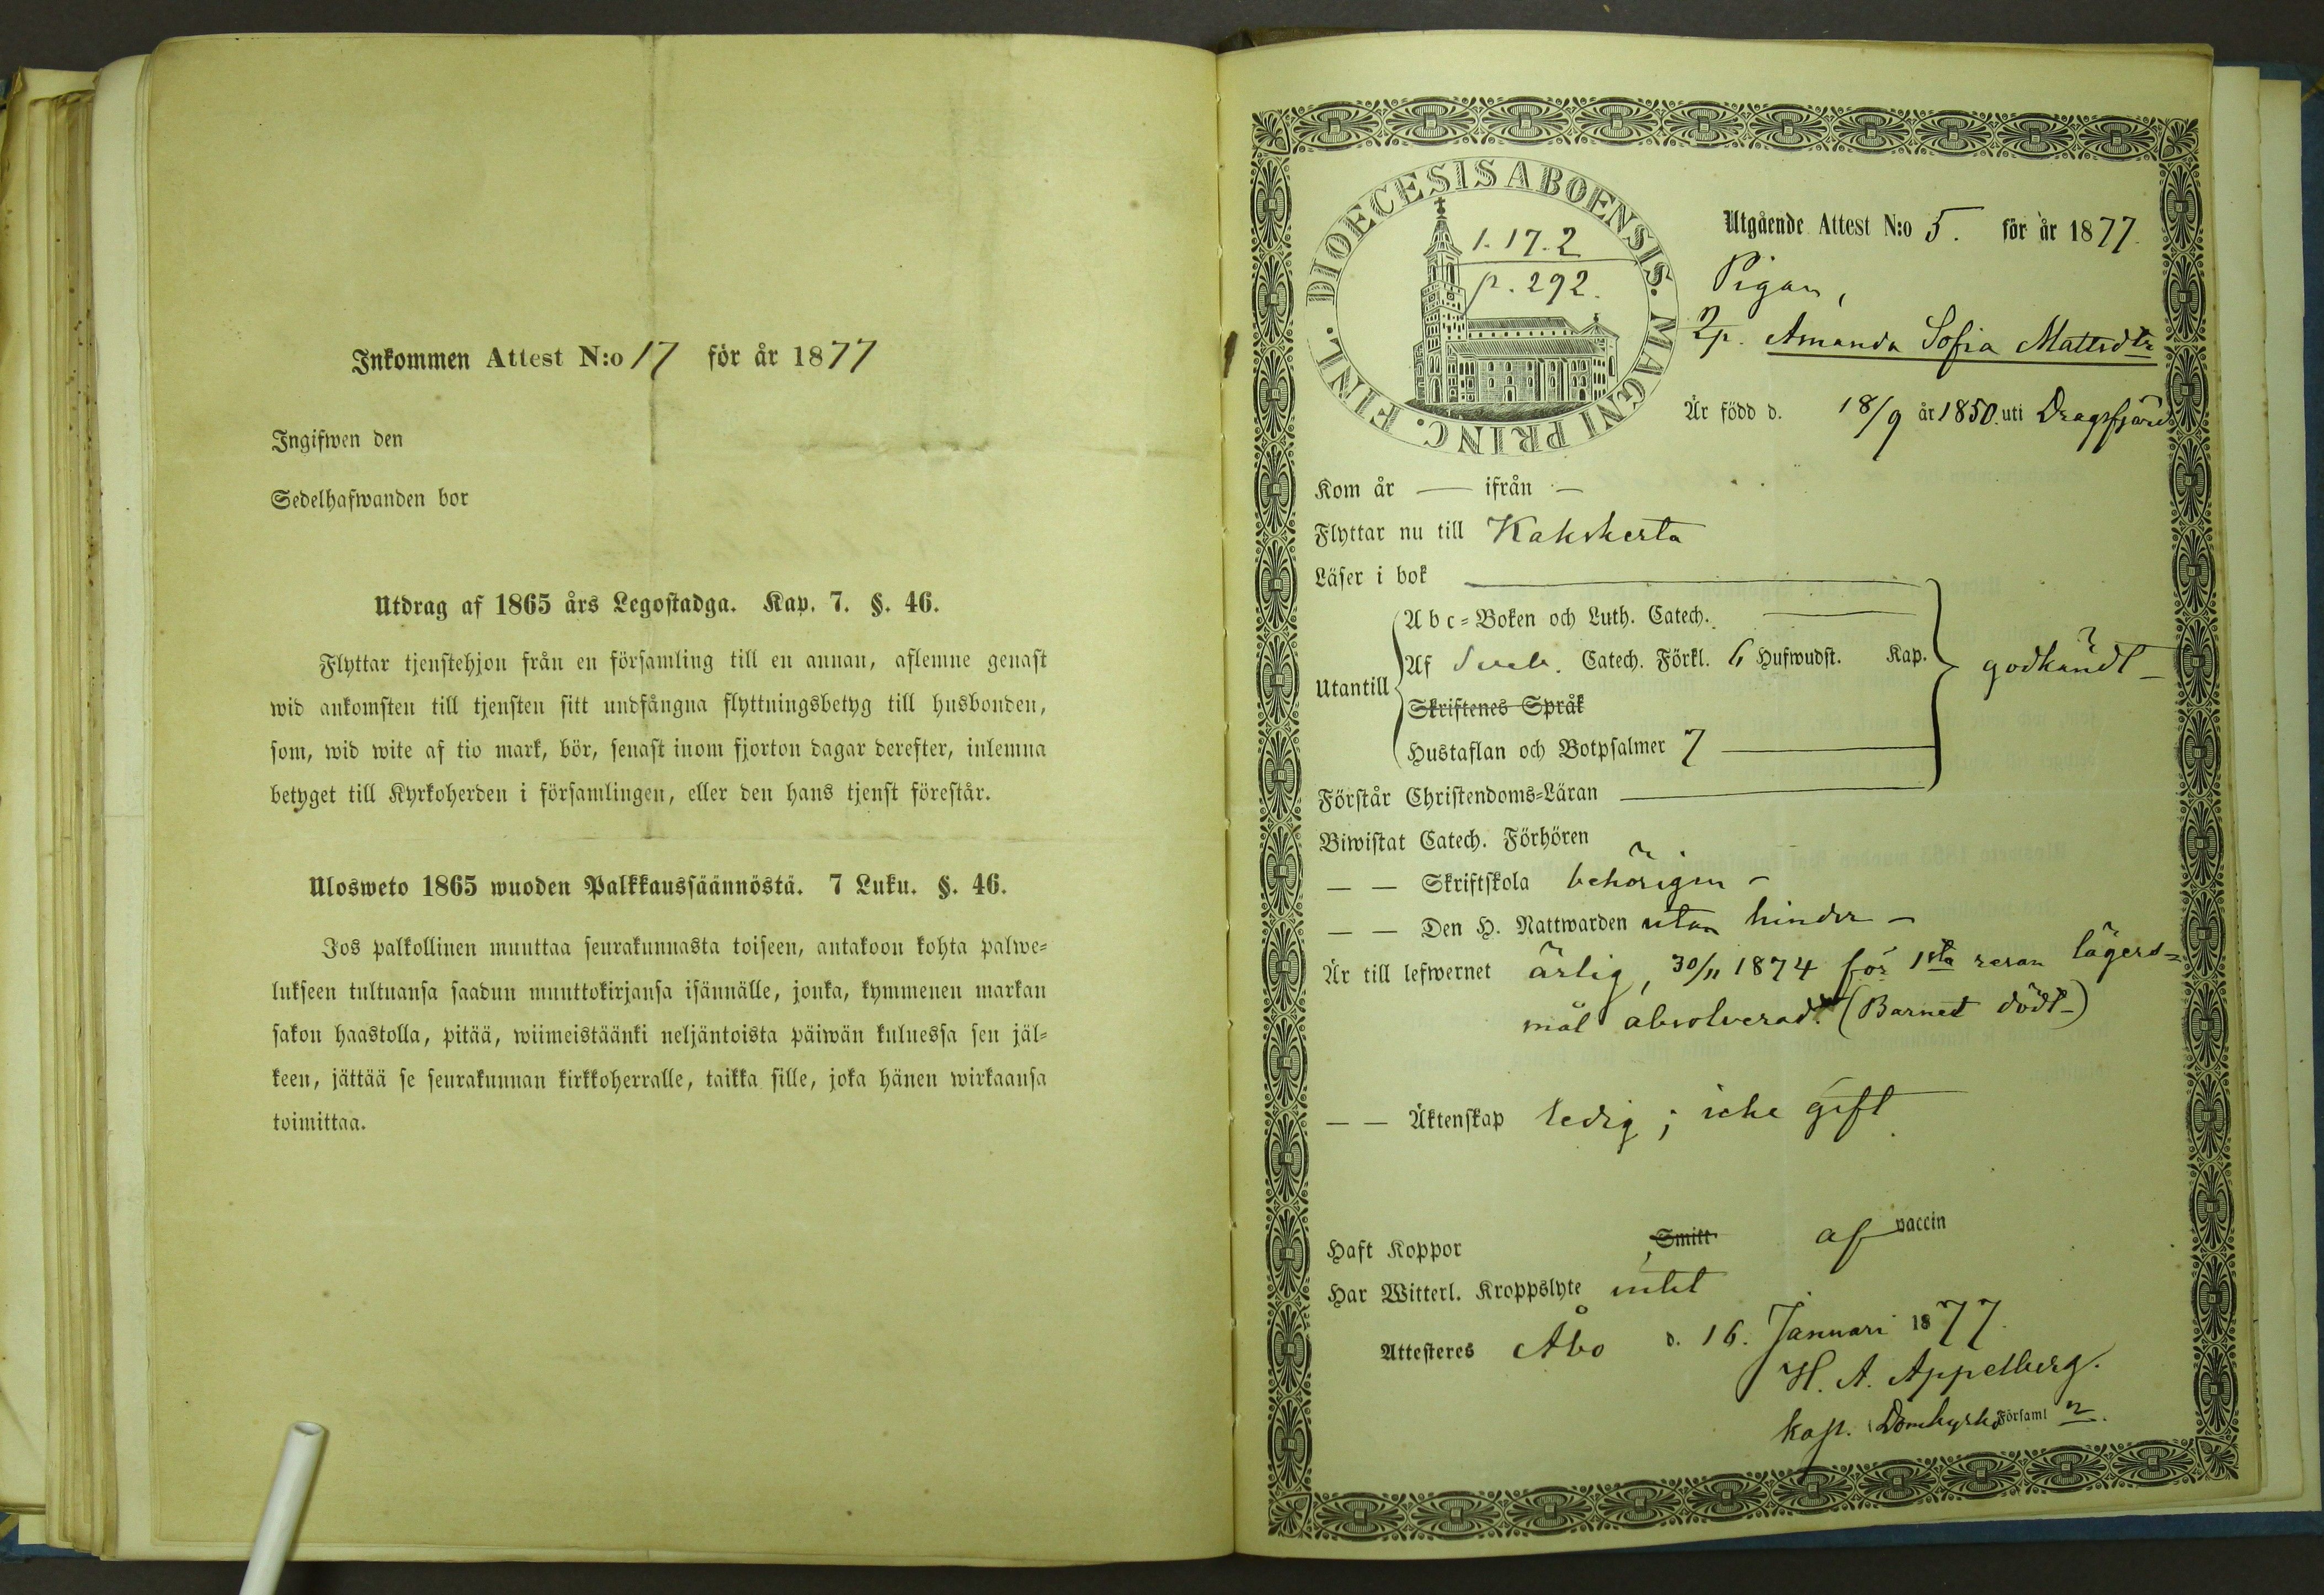 Inkommen Attest N:o 17 för år 1877
Ingifwen den
Sedelhafwanden bor
Utdrag af 1865 års Legostadga. Kap. 7. §. 46.
Flyttar tjenstehjon från en församling till en annan, aflemne genast
wid ankomsten till tjensten sitt undfångna flyttningsbetyg till husbonden,
som, wid wite af tio mark, bör, senast inom fjorton dagar derefter, inlemna
betyget till Kyrkoherden i församlingen, eller den hans tjenst förestår.
Ulosweto 1865 wuoden Palkkaussäännöstä. 7 Luku. §. 46.
Jos palkollinen muuttaa seurakunnasta toiseen, antakoon kohta palwe=
lukseen tultuansa saadun muuttokirjansa isännälle, jonka, kymmenen markan
sakon haastolla, pitää, wiimeistäänki neljäntoista päiwän kuluessa sen jäl=
keen, jättää se seurakunnan kirkkoherralle, taikka sille, joka hänen wirkaansa
toimittaa.
DIOECESIS ABOENSIS. MAGNI PRINC. FINL.
1. 17. 2
p. 292.
Utgående Attest N:o 5. för år 1877.
Pigan,
Amanda Sofia Mattsdtr
Är född d. 18/9 år 1850. uti Dragsfjärd
Kom år — ifrån —
Flyttar nu till Kakskerta
Läser i bok
Utantill
Abc=Boken och Luth. Catech.
Af Sveb. Catech. Förkl. 6 Hufwudst. Kap.
Skriftenes Språk
Hustaflan och Botpsalmer 7
godkändt
Förstår Christendoms=Läran
Biwistat Catech. Förhören
— — Skriftskola behörigen —
— — Den H. Nattwarden utan hinder —
Är till lefwernet ärlig, 30/11 1874 för 1sta resan lägers=
mål absolverad. (Barnet dödt—)
— — Äktenskap ledig; icke gift
Haft Koppor Smitt af vaccin
Har Witterl. Kroppslyte intet
Attesteres Åbo d. 16. Januari 1877.
H. A. Appelberg.
Kap. i Domkyrko Församl n.